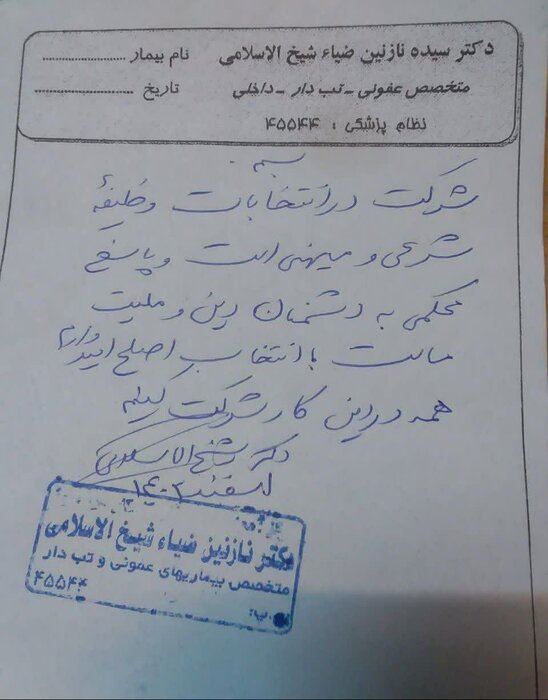 دکتر سیده نازنین ضیاء شیخ الاسلامی
نام بیمار ......................
متخصص عفونی - تب دار - داخلی
تاریخ ......................
نظام پزشکی : ۴۵۵۴۴
بسمه
شرکت در انتخابات وظیفهٔ
شرعی و میهنی است و پاسخ
محکمی به دشمنان دین و ملیت
ماست با انتخاب اصلح امیدوارم
همه در این کار شرکت کنیم
دکتر شیخ الاسلامی
اسفند ۱۴۰۲
دکتر نازنین ضیاء شیخ الاسلامی
متخصص بیماریهای عفونی و تب دار
۴۵۵۴۴